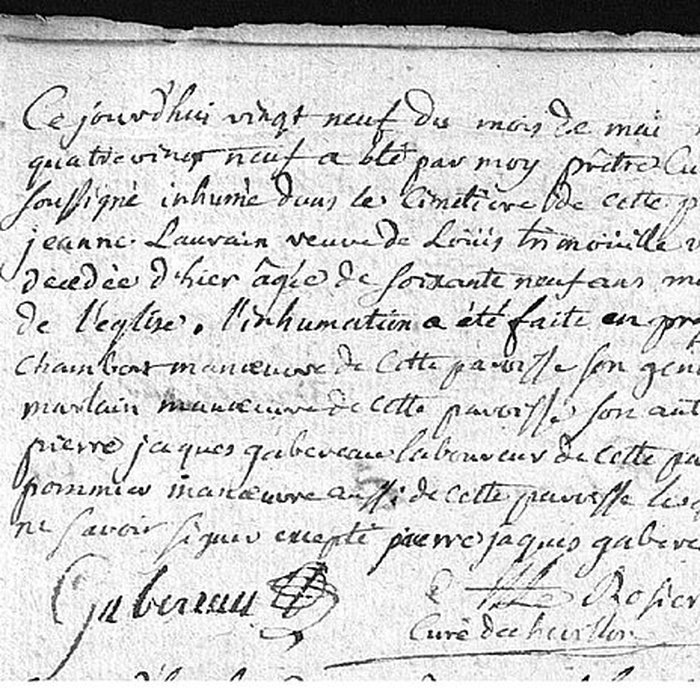 Ce jourd'hui vingt neuf du mois de mai
quatrevingt neuf a été par moy prêtre Cu
soussigné inhumé dans le Cimetière de cette p
jeanne Lauvain veuve de Loüis trimoüille
decedée d'hier âgée de soixante neuf ans m
de l'eglise. l'inhumation a été faite en pre
chambort manœuvre de cette paroisse son gen
marlain manœuvre de cette paroisse son aut
pierre jaques gabereau laboureur de cette pa
pommier manœuvre aussi de cette paroisse lesq
ne savoir signer excepté pierre jaques gabere
Gabereau Rosier
Curé de